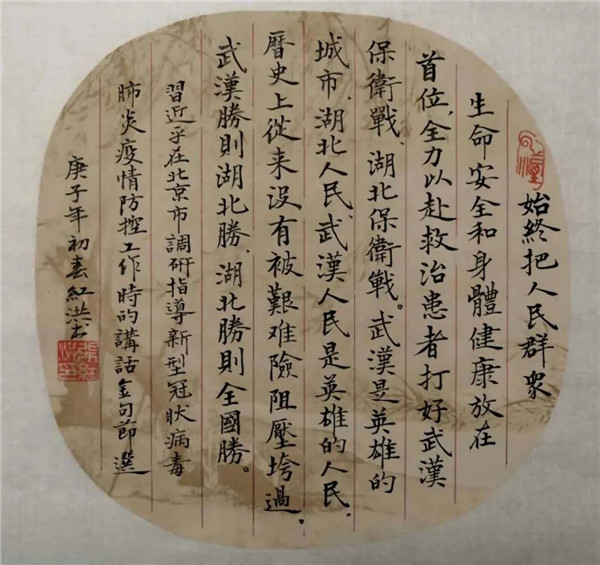 始終把人民群衆
生命安全和身體健康放在
首位,全力以赴救治患者打好武漢
保衛戰、湖北保衛戰。武漢是英雄的
城市、湖北人民、武漢人民是英雄的人民、
曆史上從来没有被艱难險阻壓垮過。
武漢勝則湖北勝、湖北勝則全國勝。
習近平在北京市調研指導新型冠狀病毒
肺炎疫情防控工作時的講話金句節選
庚子年初春紅洪书